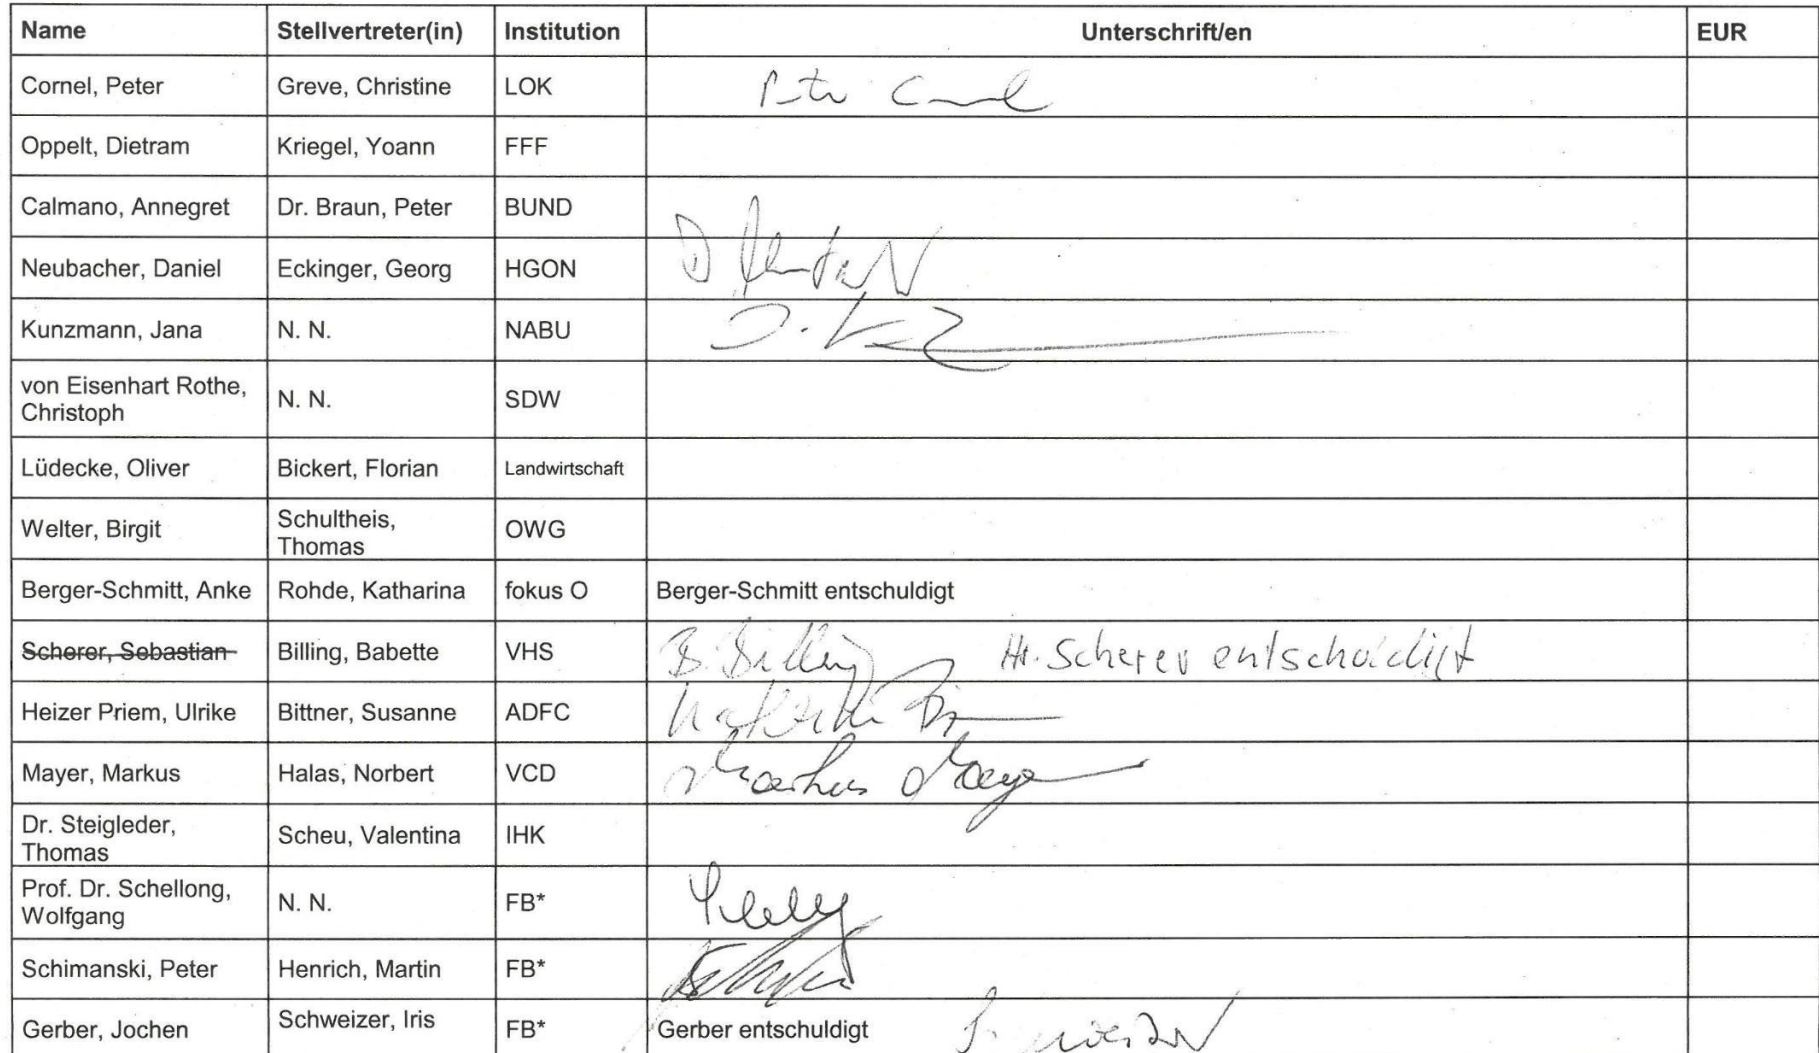 Name Stellvertreter(in) Institution Unterschrift/en EUR
Cornel, Peter Greve, Christine LOK Peter Cornel
Oppelt, Dietram Kriegel, Yoann FFF
Calmano, Annegret Dr. Braun, Peter BUND
Neubacher, Daniel Eckinger, Georg HGON
Kunzmann, Jana N. N. NABU
von Eisenhart Rothe,
Christoph N. N. SDW
Lüdecke, Oliver Bickert, Florian Landwirtschaft
Welter, Birgit Schultheis,
Thomas OWG
Berger-Schmitt, Anke Rohde, Katharina fokus O Berger-Schmitt entschuldigt
Scherer, Sebastian Billing, Babette VHS B. Billing Hr. Scherer entschuldigt
Heizer Priem, Ulrike Bittner, Susanne ADFC
Mayer, Markus Halas, Norbert VCD Markus Mayer
Dr. Steigleder,
Thomas Scheu, Valentina IHK
Prof. Dr. Schellong,
Wolfgang N. N. FB*
Schimanski, Peter Henrich, Martin FB*
Gerber, Jochen Schweizer, Iris FB* Gerber entschuldigt